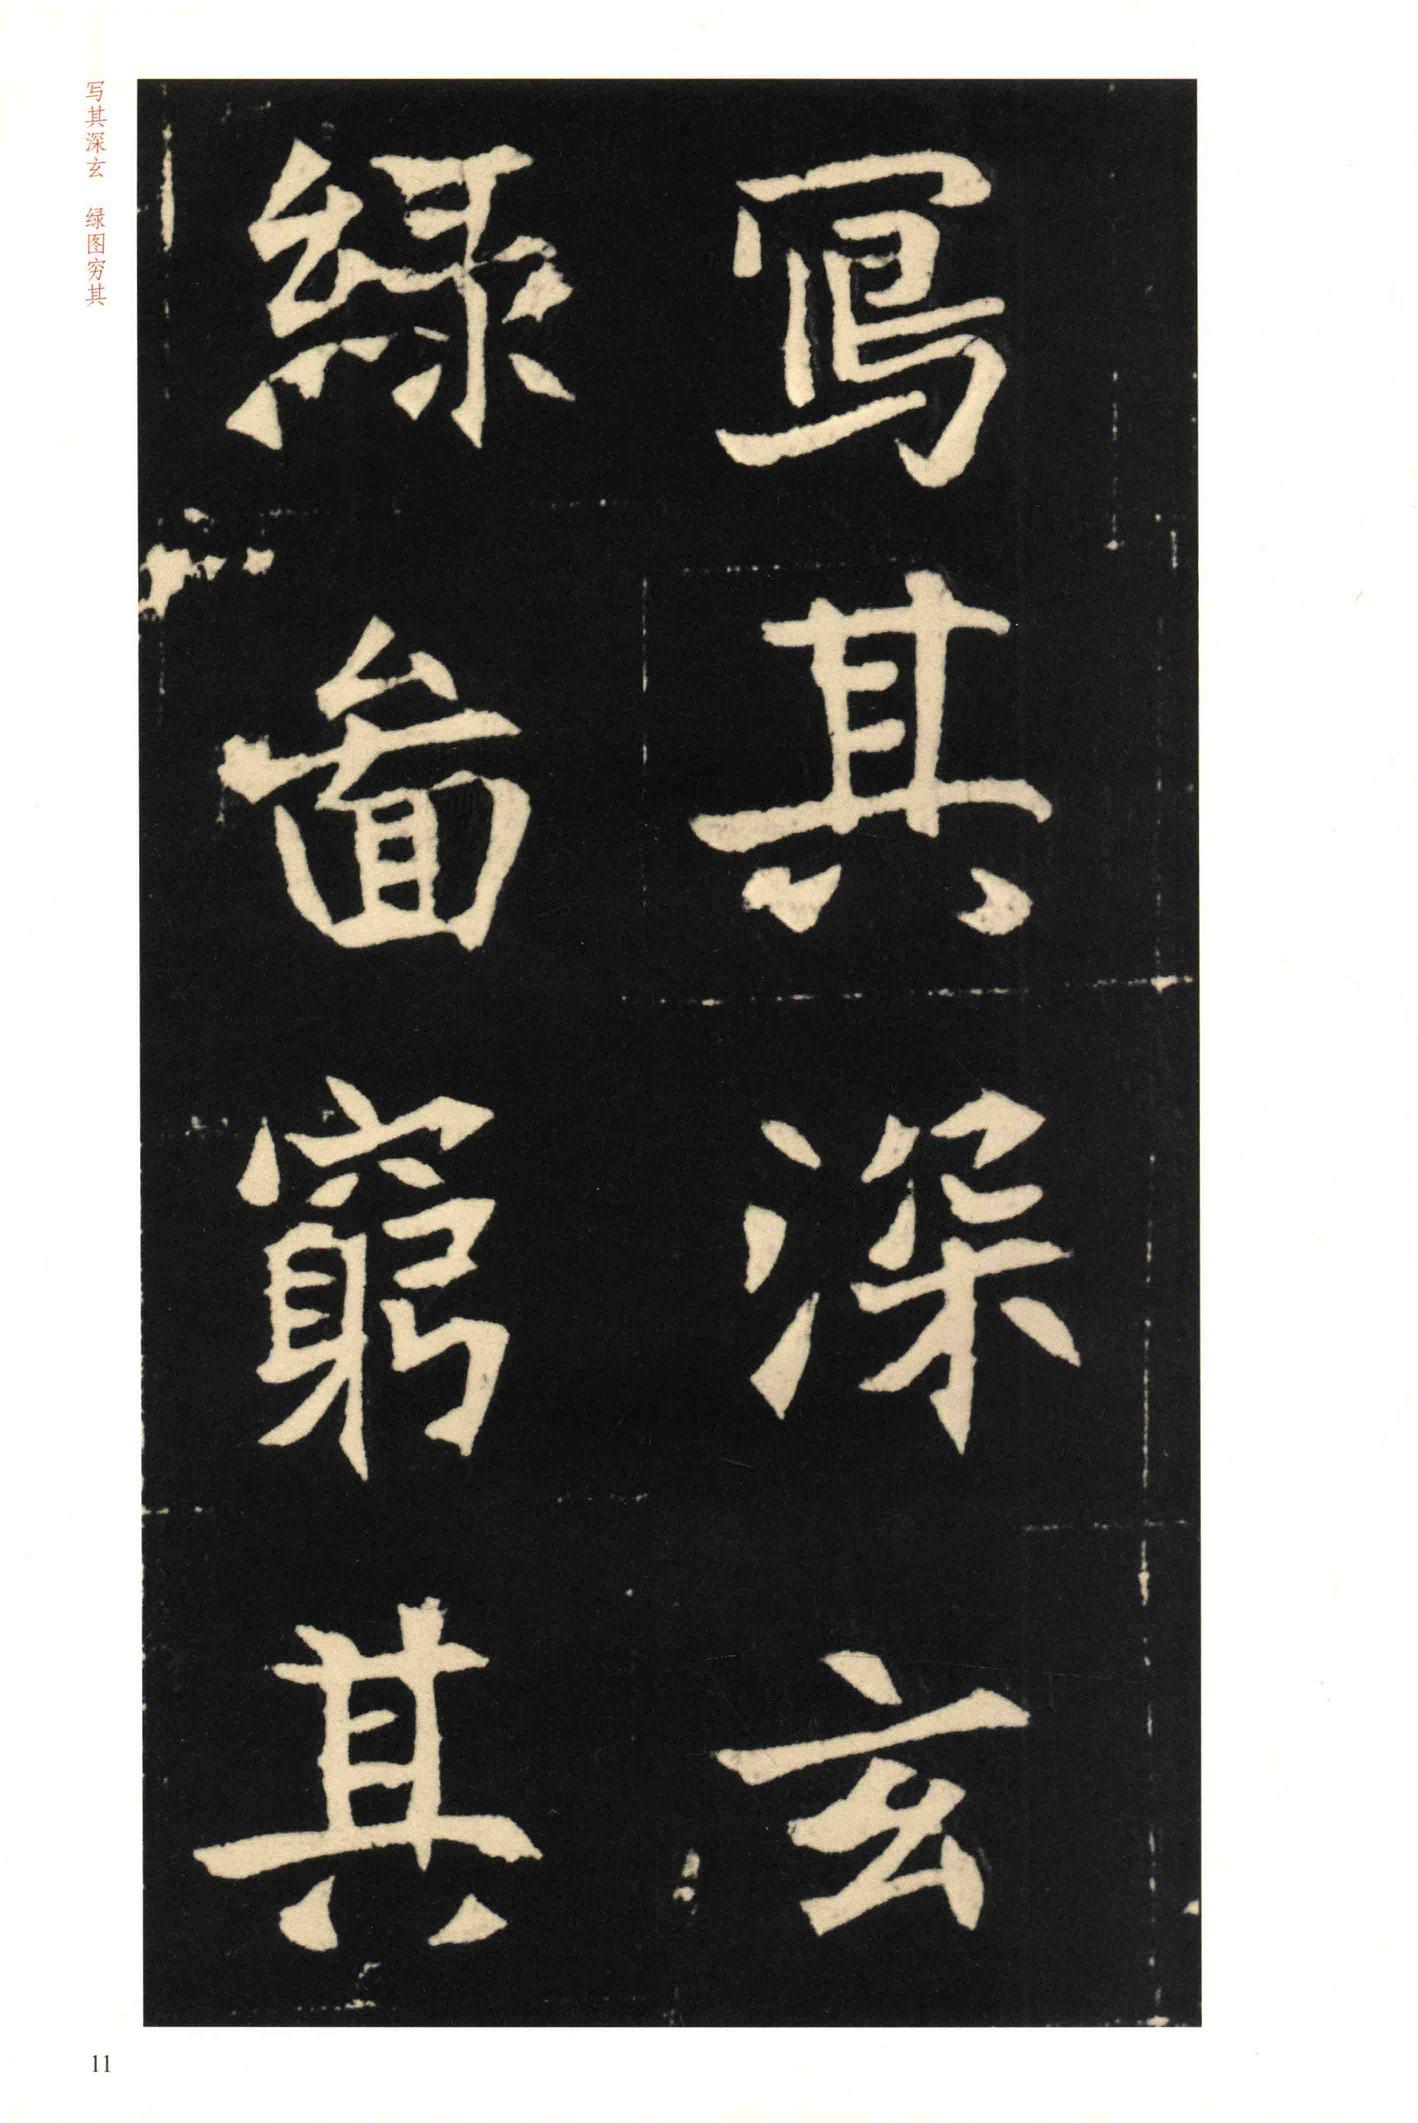 寫其深玄
綠啚窮其
写其深玄 绿图穷其
11